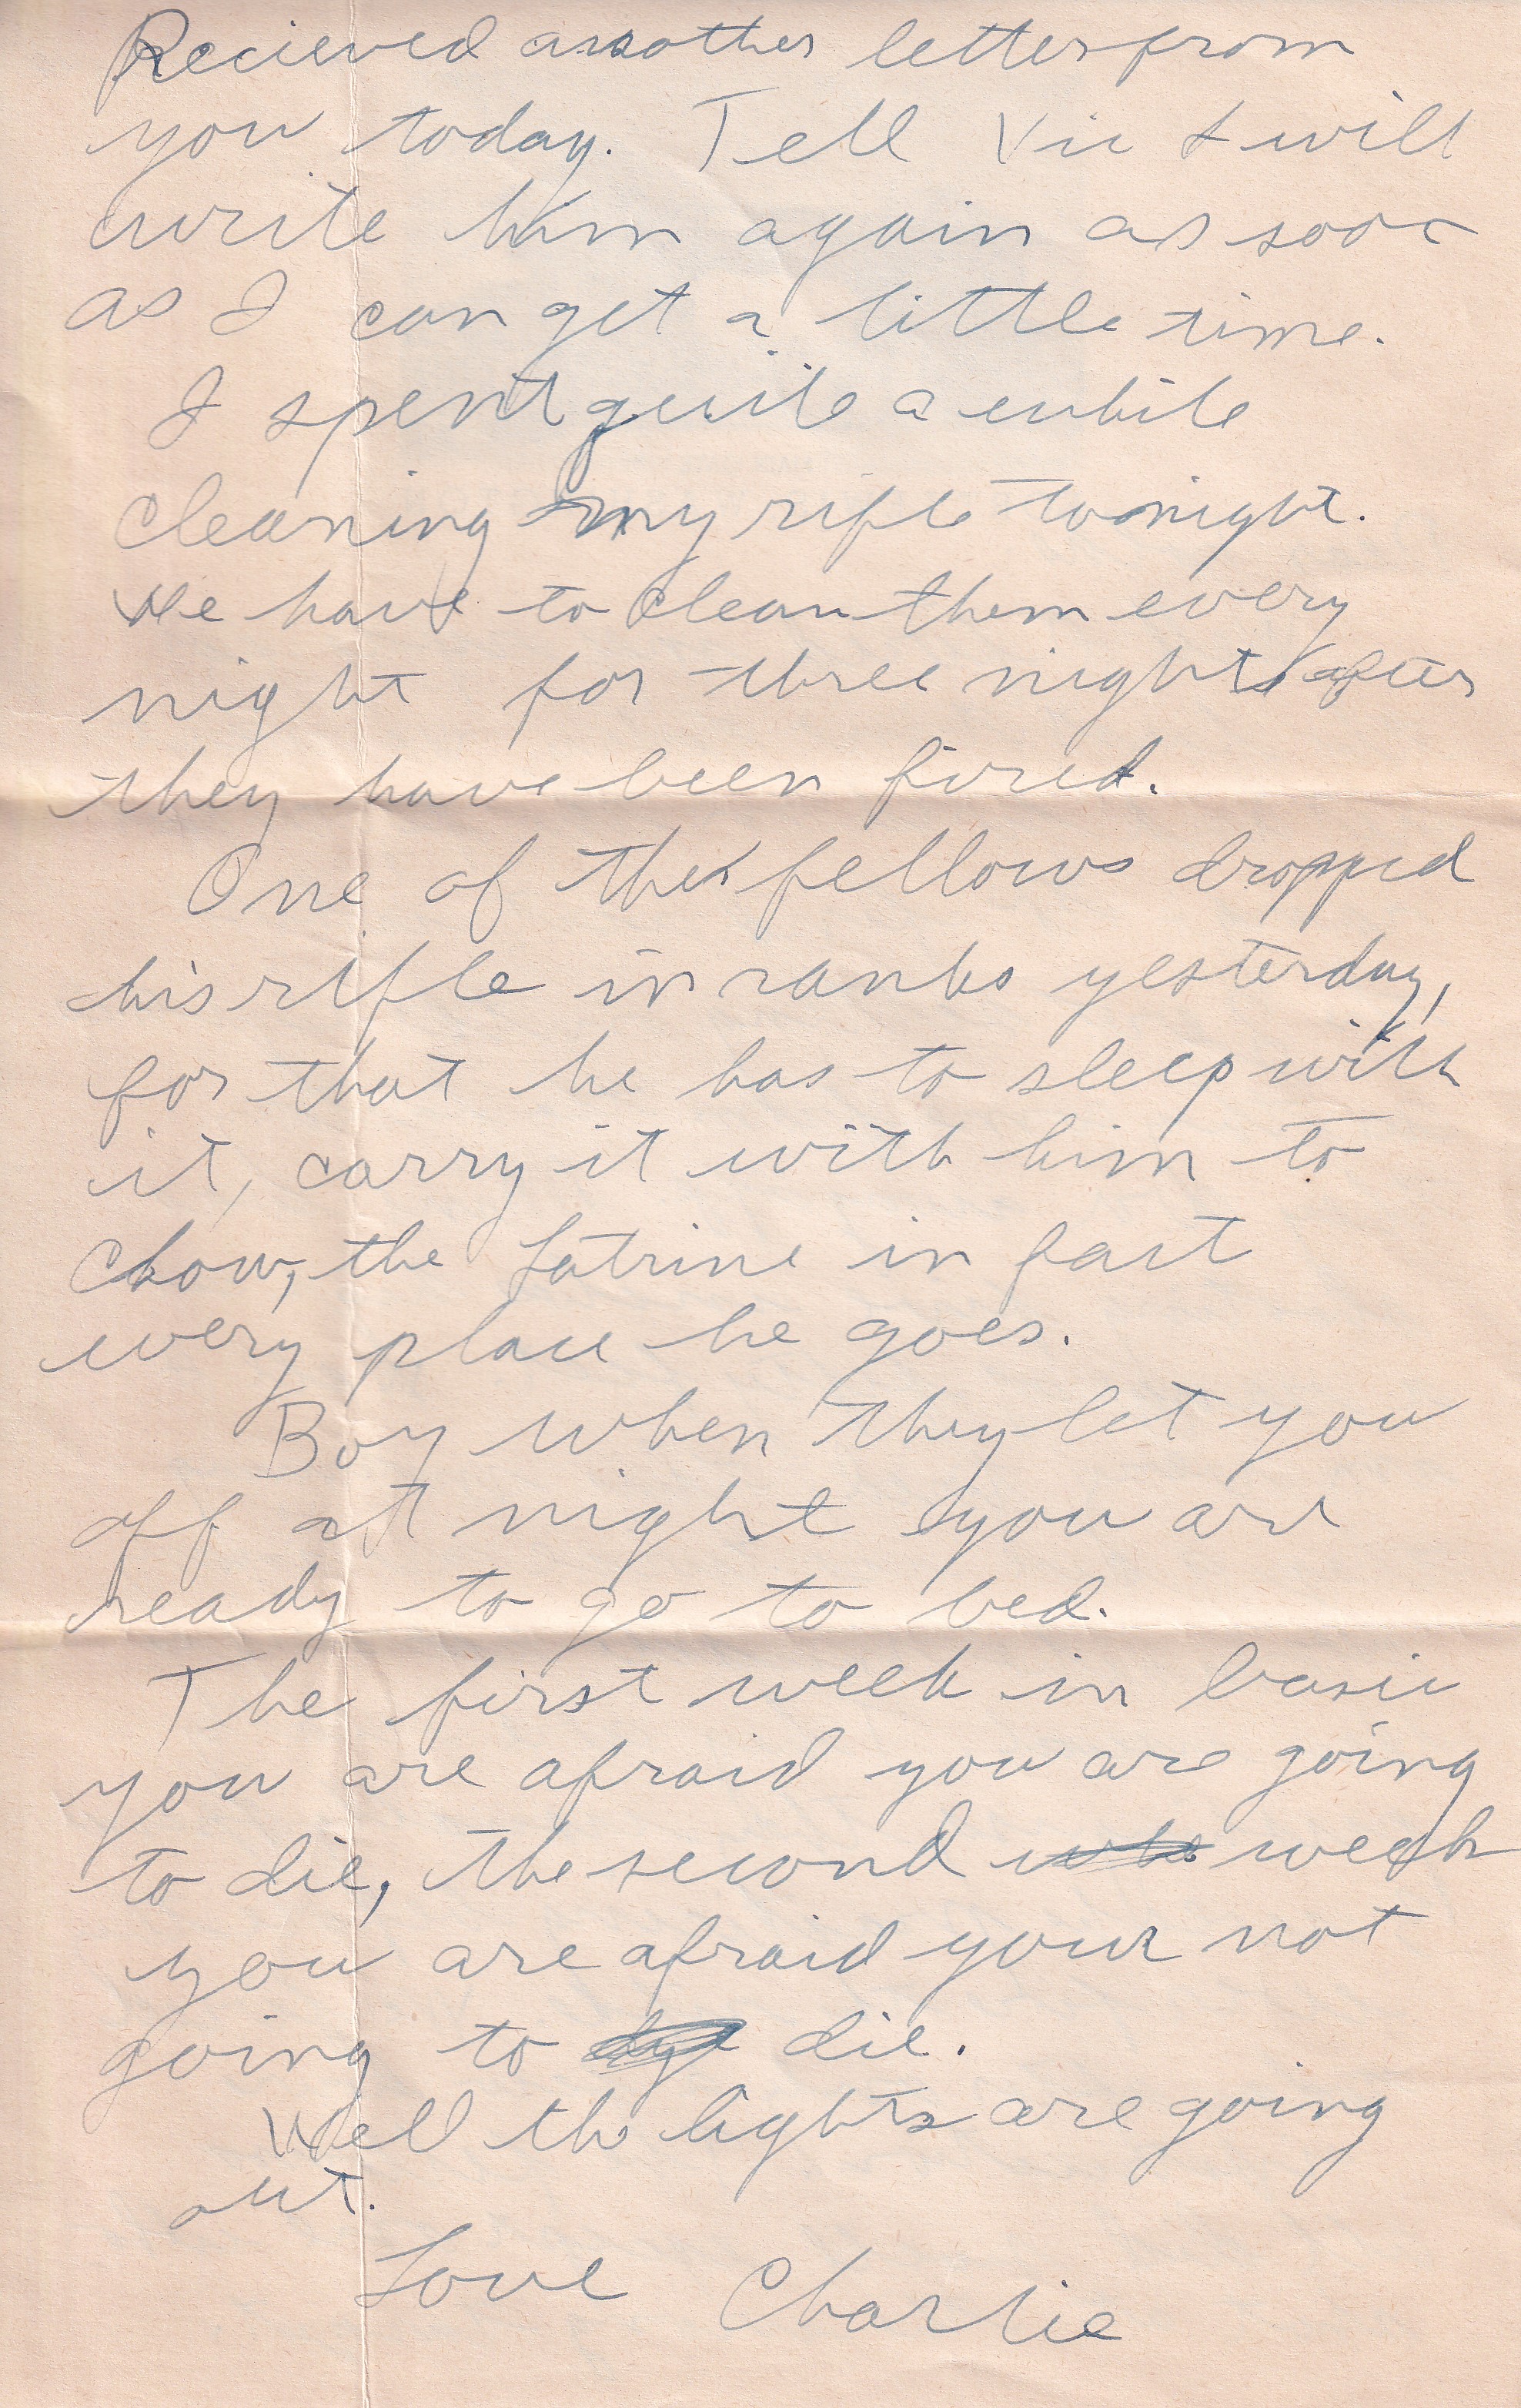 Recieved another letter from
you today. Tell Vic I will
write him again as soon
as I can get a little time.
I spent quite a while
cleaning my rifle tonight.
We have to clean them every
night for three nights after
they have been fired.
One of the fellows dropped
his rifle in ranks yesterday,
for that he has to sleep with
it, carry it with him to
Chow, the Latrine in fact
every place he goes.
Boy when they let you
off at night you are
ready to go to bed.
The first week in basic
you are afraid you are going
to die, the second week
you are afraid your not
going to die.
Well the lights are going
out.
Love Charlie